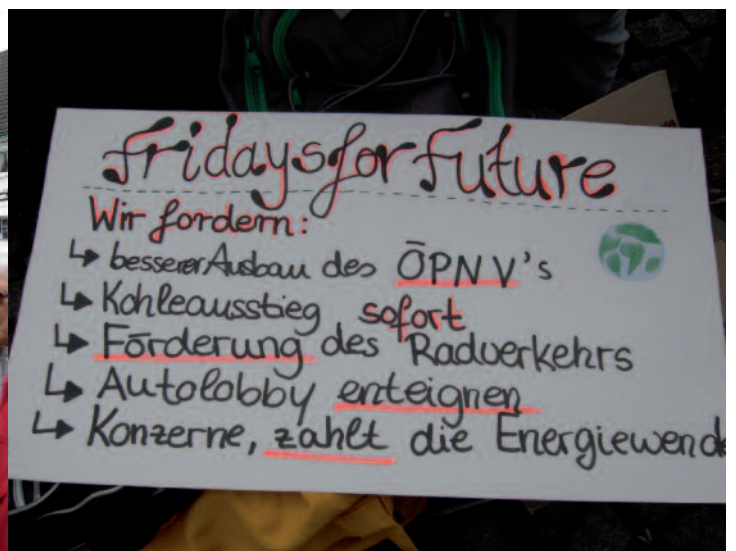 fridaysforfuture
Wir fordern:
↳ besserer Ausbau des ŌPNV's
↳ Kohleausstieg sofort
↳ Förderung des Radverkehrs
↳ Autolobby enteignen
↳ Konzerne, zahlt die Energiewende